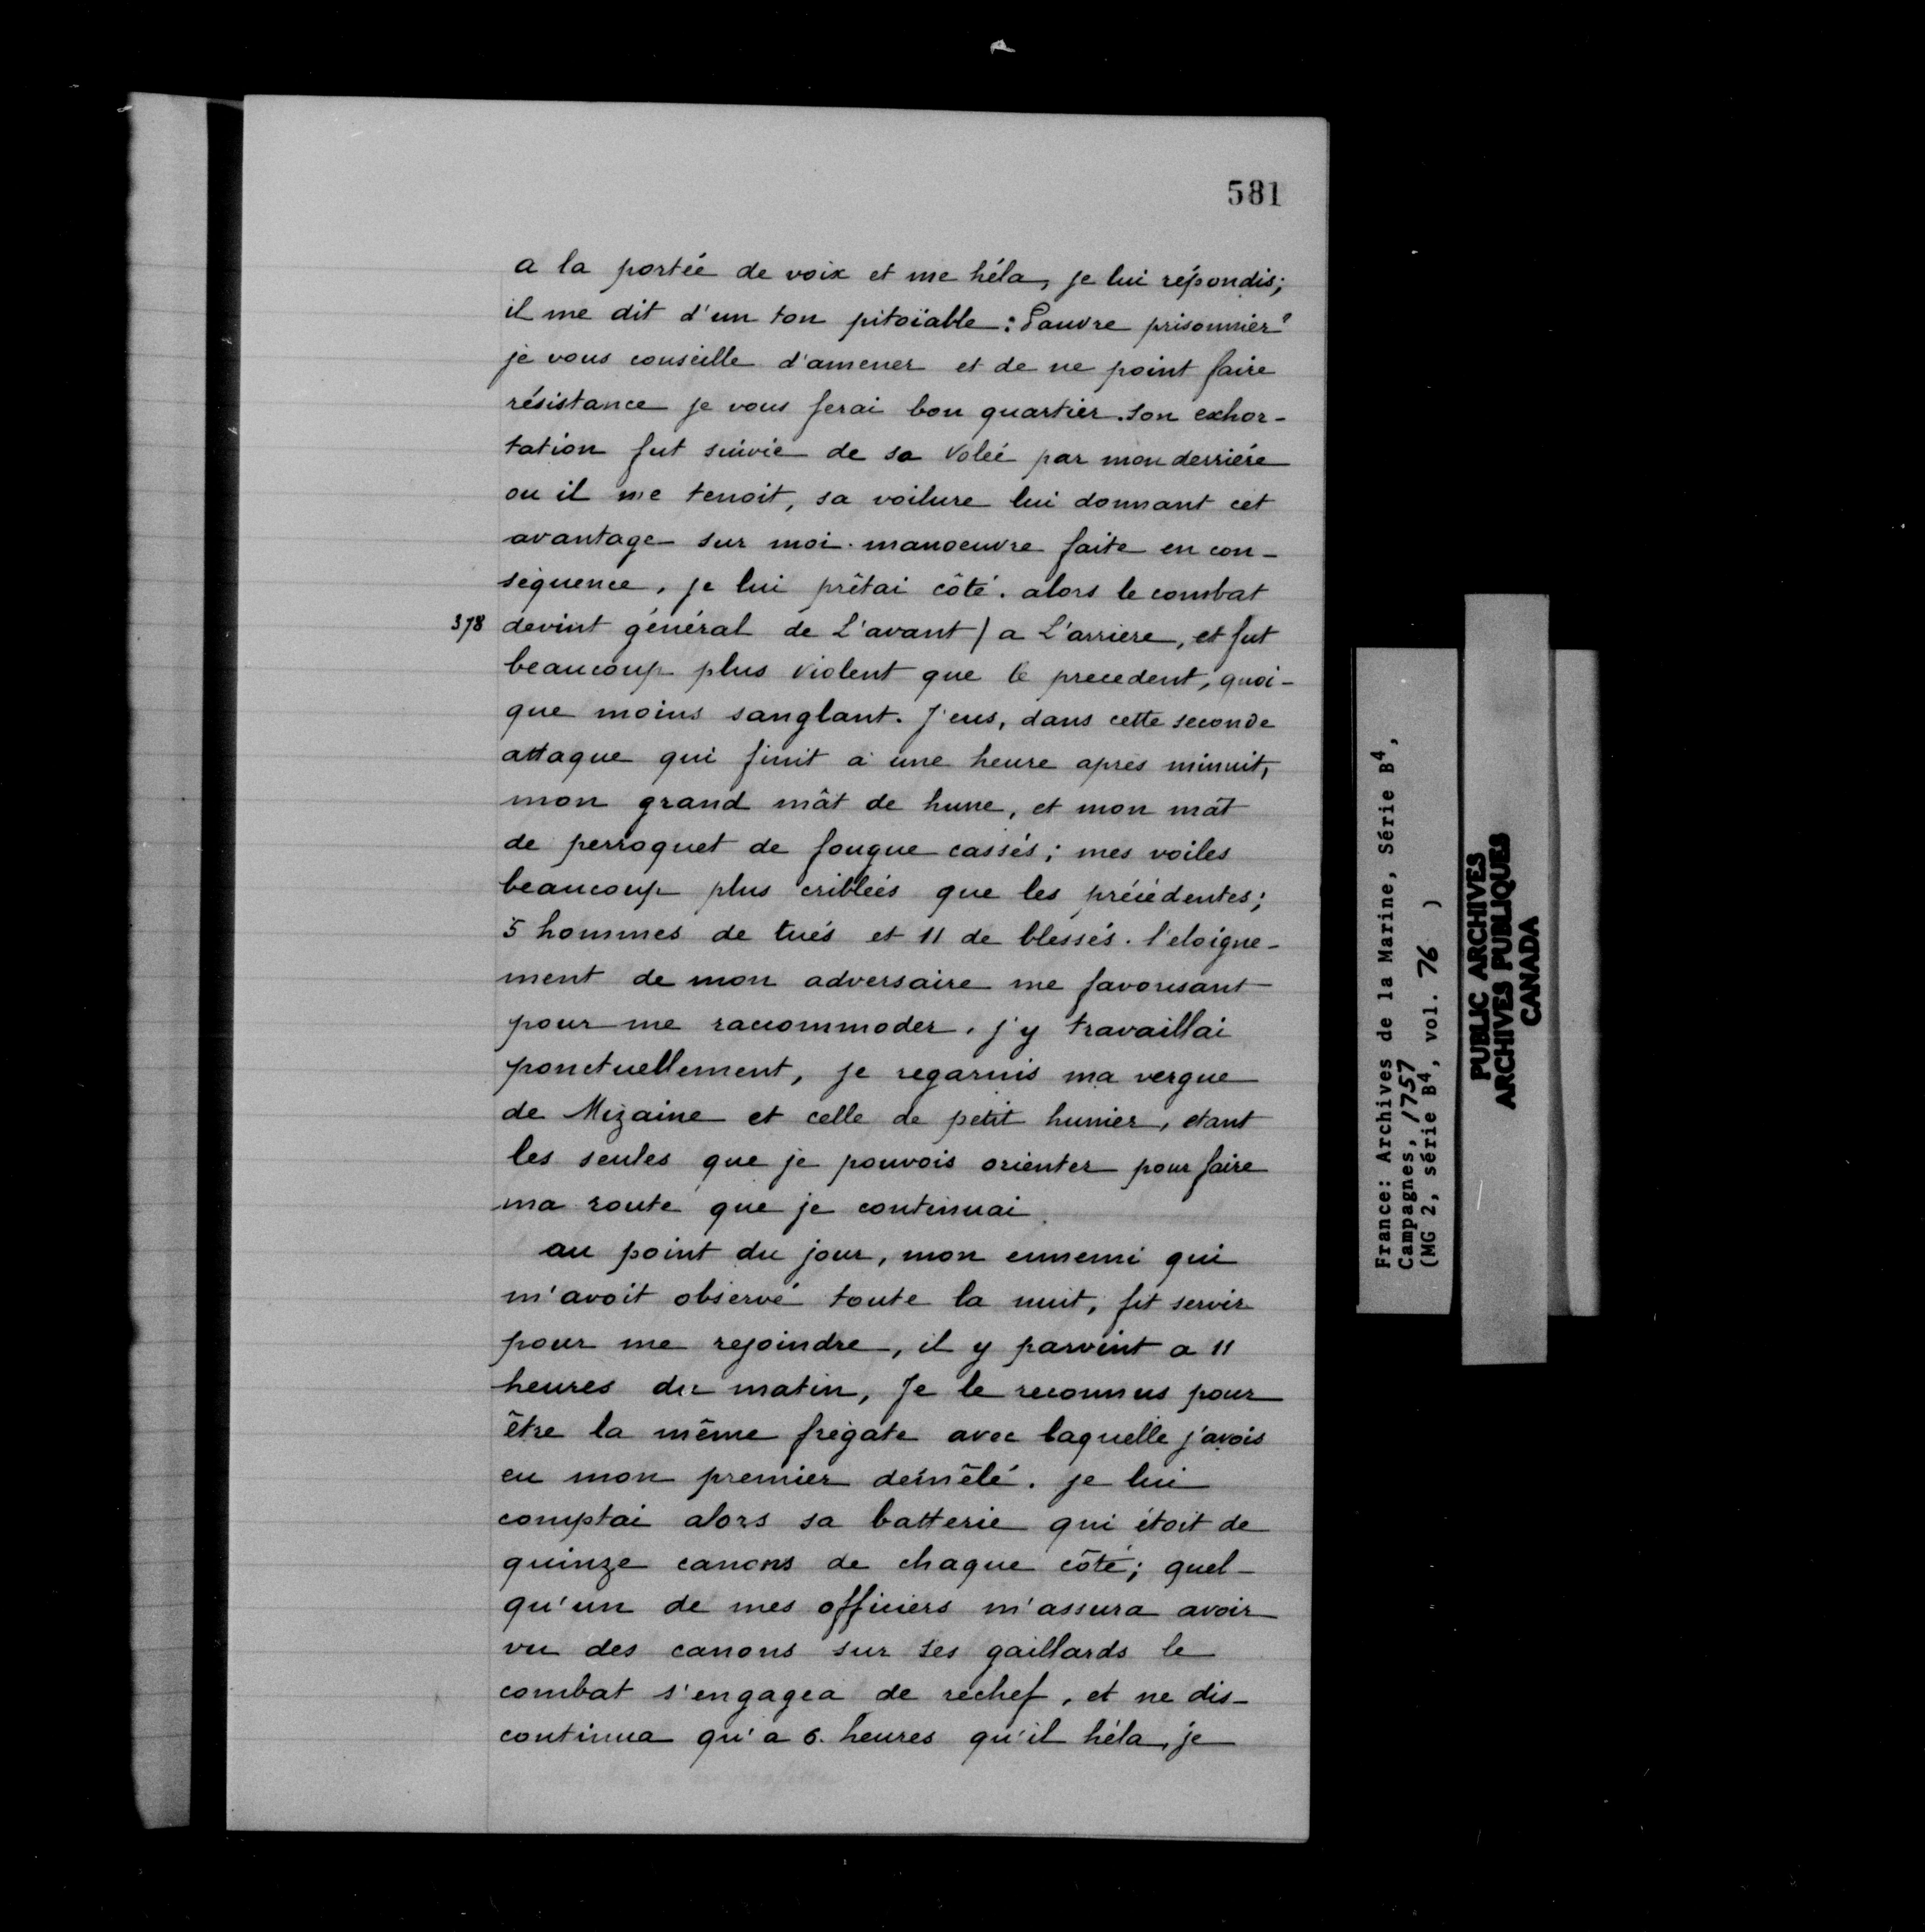 581
a la portée de voix et me héla, je lui répondis;
il me dit d'un ton pitoïable : Pauvre prisonnier?
je vous conseille d'amener et de ne point faire
résistance je vous ferai bon quartier. Son exhor-
tation fut suivie de sa Volée par mon derriére
ou il me tenoit, sa voilure lui donnant cet
avantage sur moi. manoeuvre faite en con-
séquence, je lui prêtai côté. alors le combat
378 devint général de L'avant / a L'arriere, et fut
beaucoup plus violent que le precedent, quoi-
que moins sanglant. J'eus, dans cette seconde
attaque qui finit a une heure apres minuit,
mon grand mât de hune, et mon mât
de perroquet de fougue cassés; mes voiles
beaucoup plus criblées que les précédentes;
5 hommes de tués et 11 de blessés. l'eloigne-
ment de mon adversaire me favorisant
pour me raccommoder, j'y travaillai
ponctuellement, je regarnis ma vergue
de Mizaine et celle de petit hunier, etant
les seules que je pouvois orienter pour faire
ma route que je continuai.
au point du jour, mon ennemi qui
m'avoit observé toute la nuit, fit servir
pour me rejoindre, il y parvint a 11
heures du matin, Je le reconnus pour
être la même frégate avec laquelle j'avois
eu mon premier démêlé. je lui
comptai alors sa batterie qui étoit de
quinze canons de chaque côté; quel-
qu'un de mes officiers m'assura avoir
vu des canons sur ses gaillards le
combat s'engagea de rechef, et ne dis-
continua qu'a 6. heures qu'il héla, je
France: Archives de la Marine, Série B4,
Campagnes, 1757
(MG 2, série B4, vol. 76 )
PUBLIC ARCHIVES
ARCHIVES PUBLIQUES
CANADA